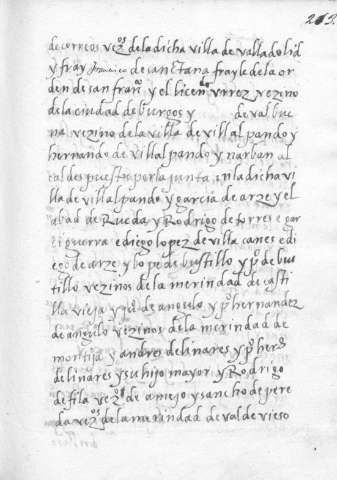 213.
de correos vezos de la dicha villa de valladolid
y fray francisco de sanctana frayle de la or
den de san franco y el licendo urrez vezino
de la ciudad de burgos y de valbue
na vezino de la villa de villalpando y
hernando de villalpando y narban al
caldes puesto por la junta en la dicha vi
lla de villalpando y garcia de arze y el
abad de Rueda y Rodrigo de torres e gar
ci guerra e diego lopez de villa canes e di
ego de arze y lope de bustillo y po de bus
tillo vezinos de la merindad de casti
lla vieja y juo de angulo y po hernandez
de angulo vezinos de la merindad de
montija y andres de linares y po herns
de linares y su hijo mayor y Rodrigo
de fila vezo de amejo y sancho de pere
da vezos de la merindad de valdevieso